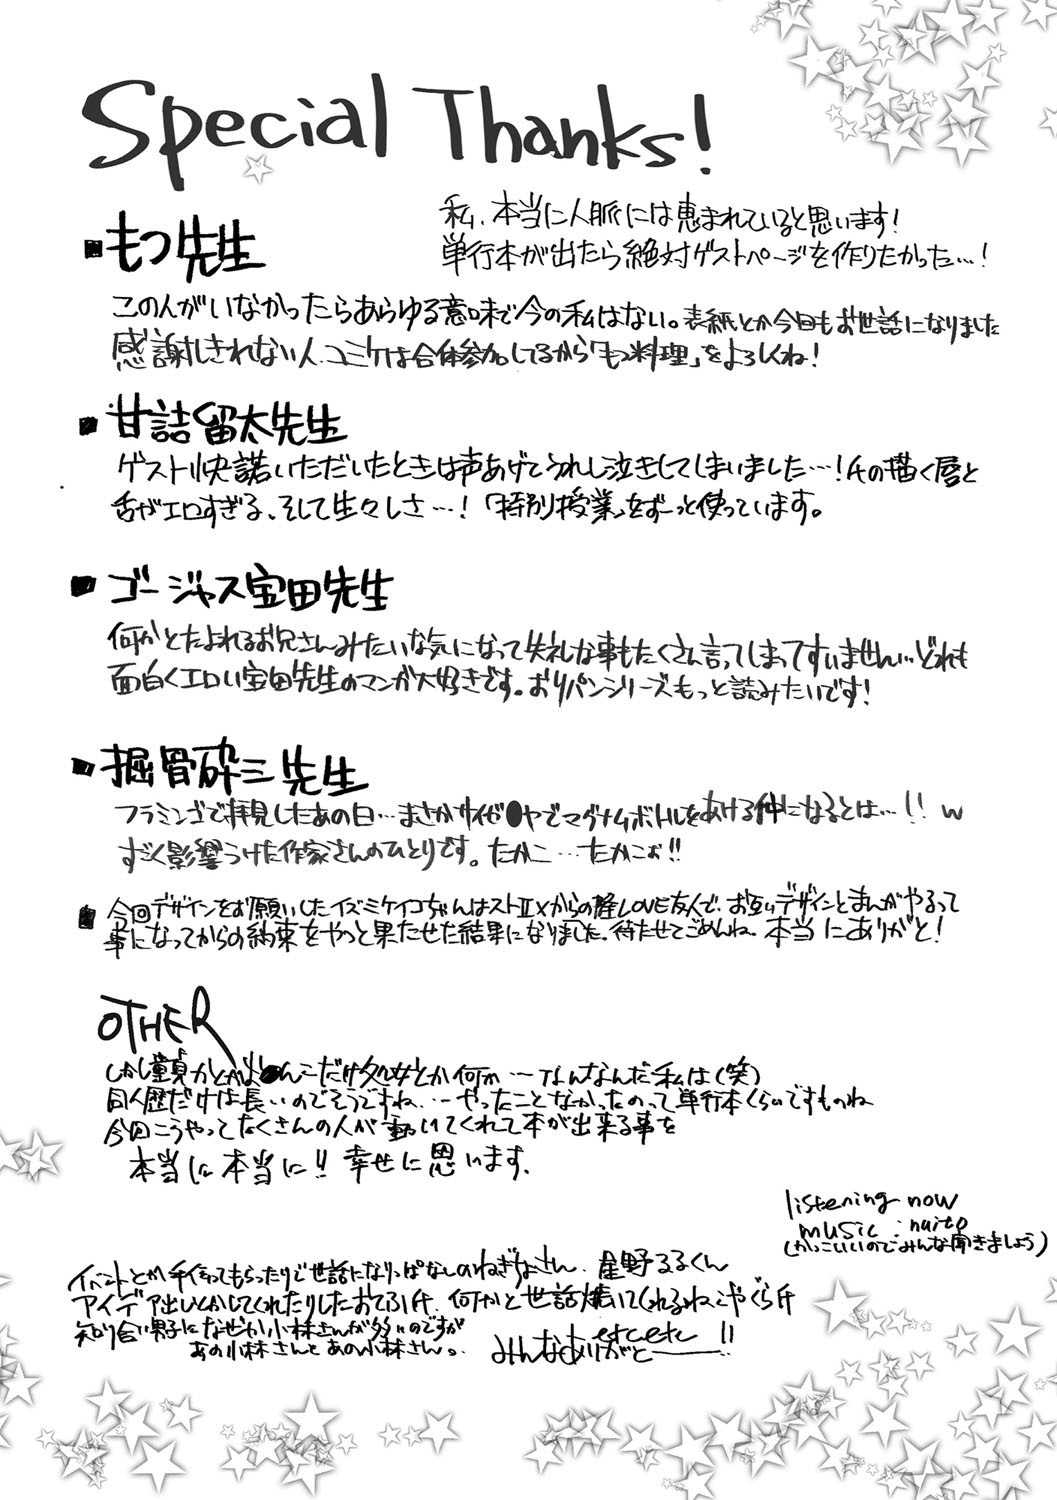 Special Thanks!
私、本当に人脈には恵まれていると思います!
単行本が出たら絶対ゲストページを作りたかった…!
■もつ先生
この人がいなかったらあらゆる意味で今の私はない。表紙とか今回もお世話になりました
感謝しきれない人。コミケは合体参加してるから「もつ料理」をよろしくね!
■甘詰留太先生
ゲスト快諾いただいたときは声あげてうれし泣きしてしまいました…!Fの描く唇と
舌がエロすぎる、そして生々しさ…!「特別授業」をずーっと使っています。
■ゴージャス宝田先生
何かとたよれるお兄さんみたいな気になって失礼な事もたくさん言ってしまってすいません…どれも
面白くエロい宝田先生のマンガ大好きです。おりパンシリーズもっと読みたいです!
■掘骨砕三先生
フラミンゴで拝見したあの日…まさかサイゼ●ヤでマグナムボトルをあける仲になるとは…!!w
すごく影響うけた作家さんのひとりです。たかこ…たかこぉ!!
■今回デザインをお願いしたイズミケイコちゃんはストⅡXからの LOVE友人で、お互いデザインとまんがやるって
事になってからの約束をやっと果たせた結果になりました。待たせてごめんね。本当にありがと!
OTHER
しかし童貞かとか ●んこだけ処女とか何か…なんなんだ私は(笑)
同人歴だけは長いのでそうですね…やったことなかったのって単行本くらいですものね
今回こうやってたくさんの人が動いてくれて本が出来る事を
本当に本当に!!幸せに思います。
listening now
music : naito
(かっこいいのでみんな聞きましょう)
イベントとか手伝ってもらったりで世話になりっぱなしのねぎなさん、星野るるくん
アイデア出しとかしてくれたりしたおてふF、何かと世話焼いてくれるねこやぐらF
知り合い男子になぜか小林さんが多いのですが
あの小林さんとあの小林さんっ
etcetc
みんなありがと――!!